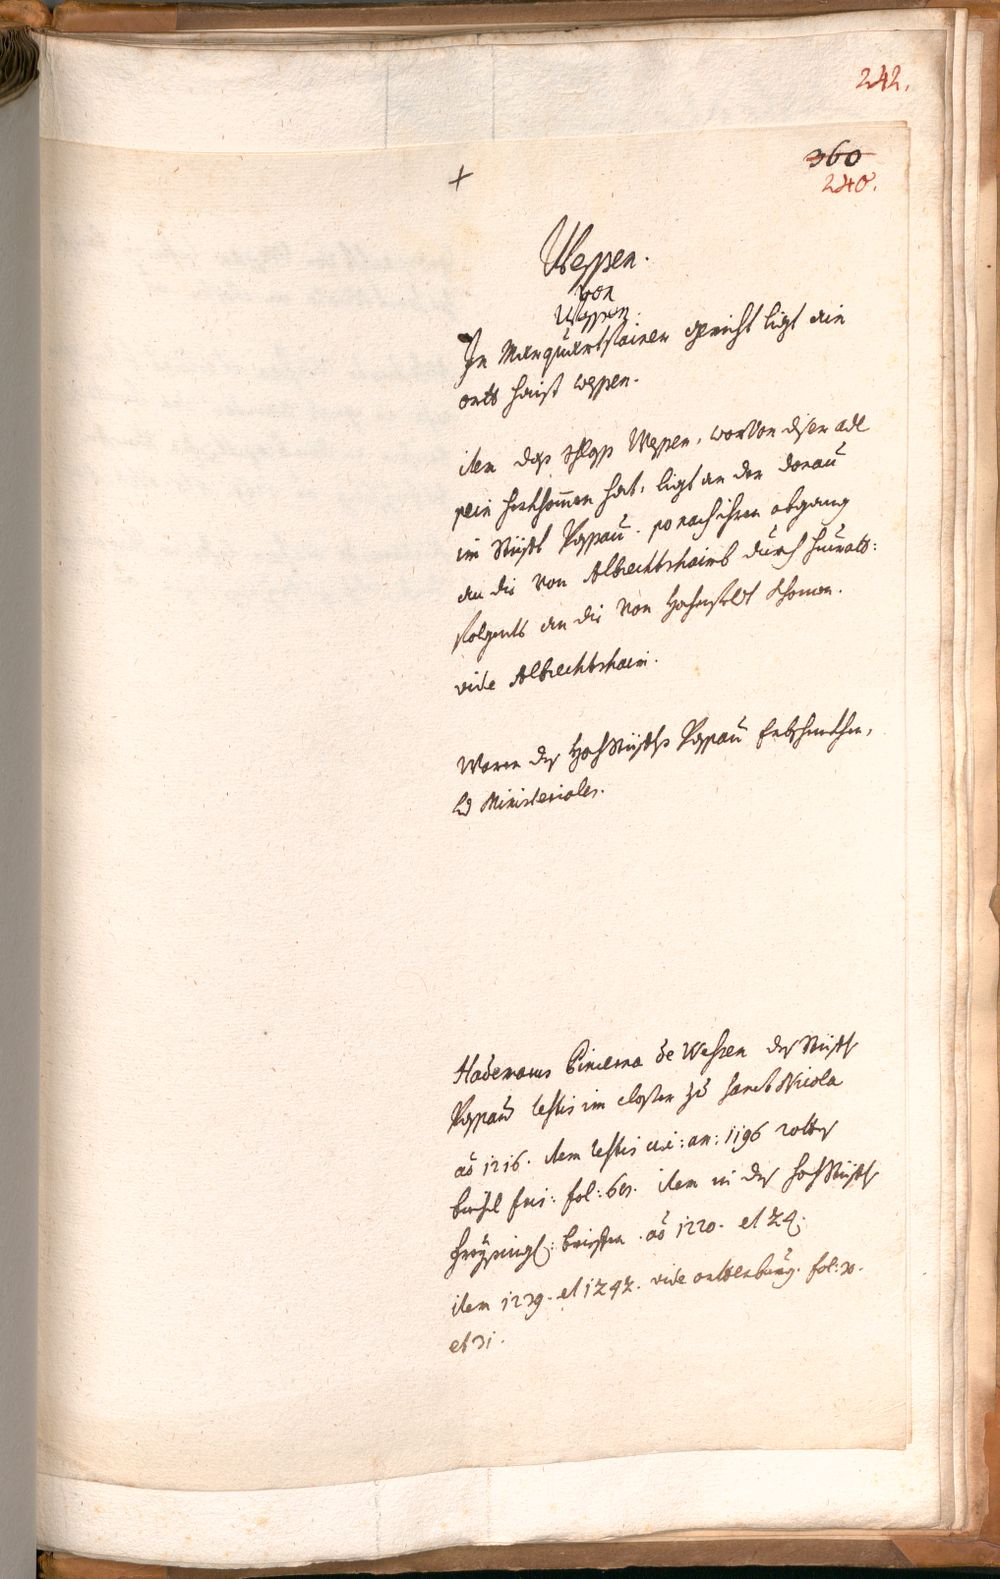 242.
360
240.
+
Wessen.
von
Wessen.
In Marquartstainer gericht ligt ain
orth haist wessen.
item das schloss Wessen, worvon diser adl
sein herkhomen hat, ligt an der Donau
im Stüfft Passau. so nach ihren abgang
an die von Albrechtshaimb durch heurath:
folgents an die von Hohenfeldt khomen.
vide Albrechtshaim.
Waren des Hochstüffts Passau Erbschenkhen,
Ministeriales.
Hadematus Pincerna de Wesen des Stüffts
Passau testis im closter zu sanct Nicola
ao 1216. item testis an: 1196
fol: item in des hochstüffts
Freysing: brieffen ao 1220. et 24.
item 1239. et 1242. vide ortenburg. fol: 30.
et 31.